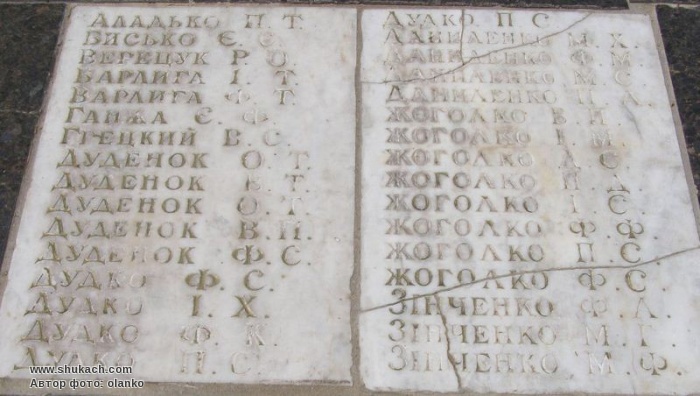 Аладько П. Т.
Бисько Є. Є.
Верецук Р. О.
Варлига І. Т.
Варлига Ф. Т.
Ганжа Є. Ф.
Грецкий В. С.
Дуденок О. Т.
Дуденок Т.
Дуденок О. Т.
Дуденок В. И.
Дуденок Ф. С.
Дудко Ф. С.
Дудко І. Х.
Дудко Ф. К.
Дудко П. С.
Дудко П. С.
Даниленко М. Х.
Даниленко Ф. М.
Даниленко М. С.
Даниленко П. Л.
Жоголко В. И.
Жоголко І. М.
Жоголко Є.
Жоголко Д.
Жоголко І. Є.
Жоголко Ф. Ф.
Жоголко П. Є.
Жоголко Ф. С.
Зінченко Ф. Л.
Зінченко М. Г.
Зінченко М. Ф.
www.shukach.com
Автор фото: olanko